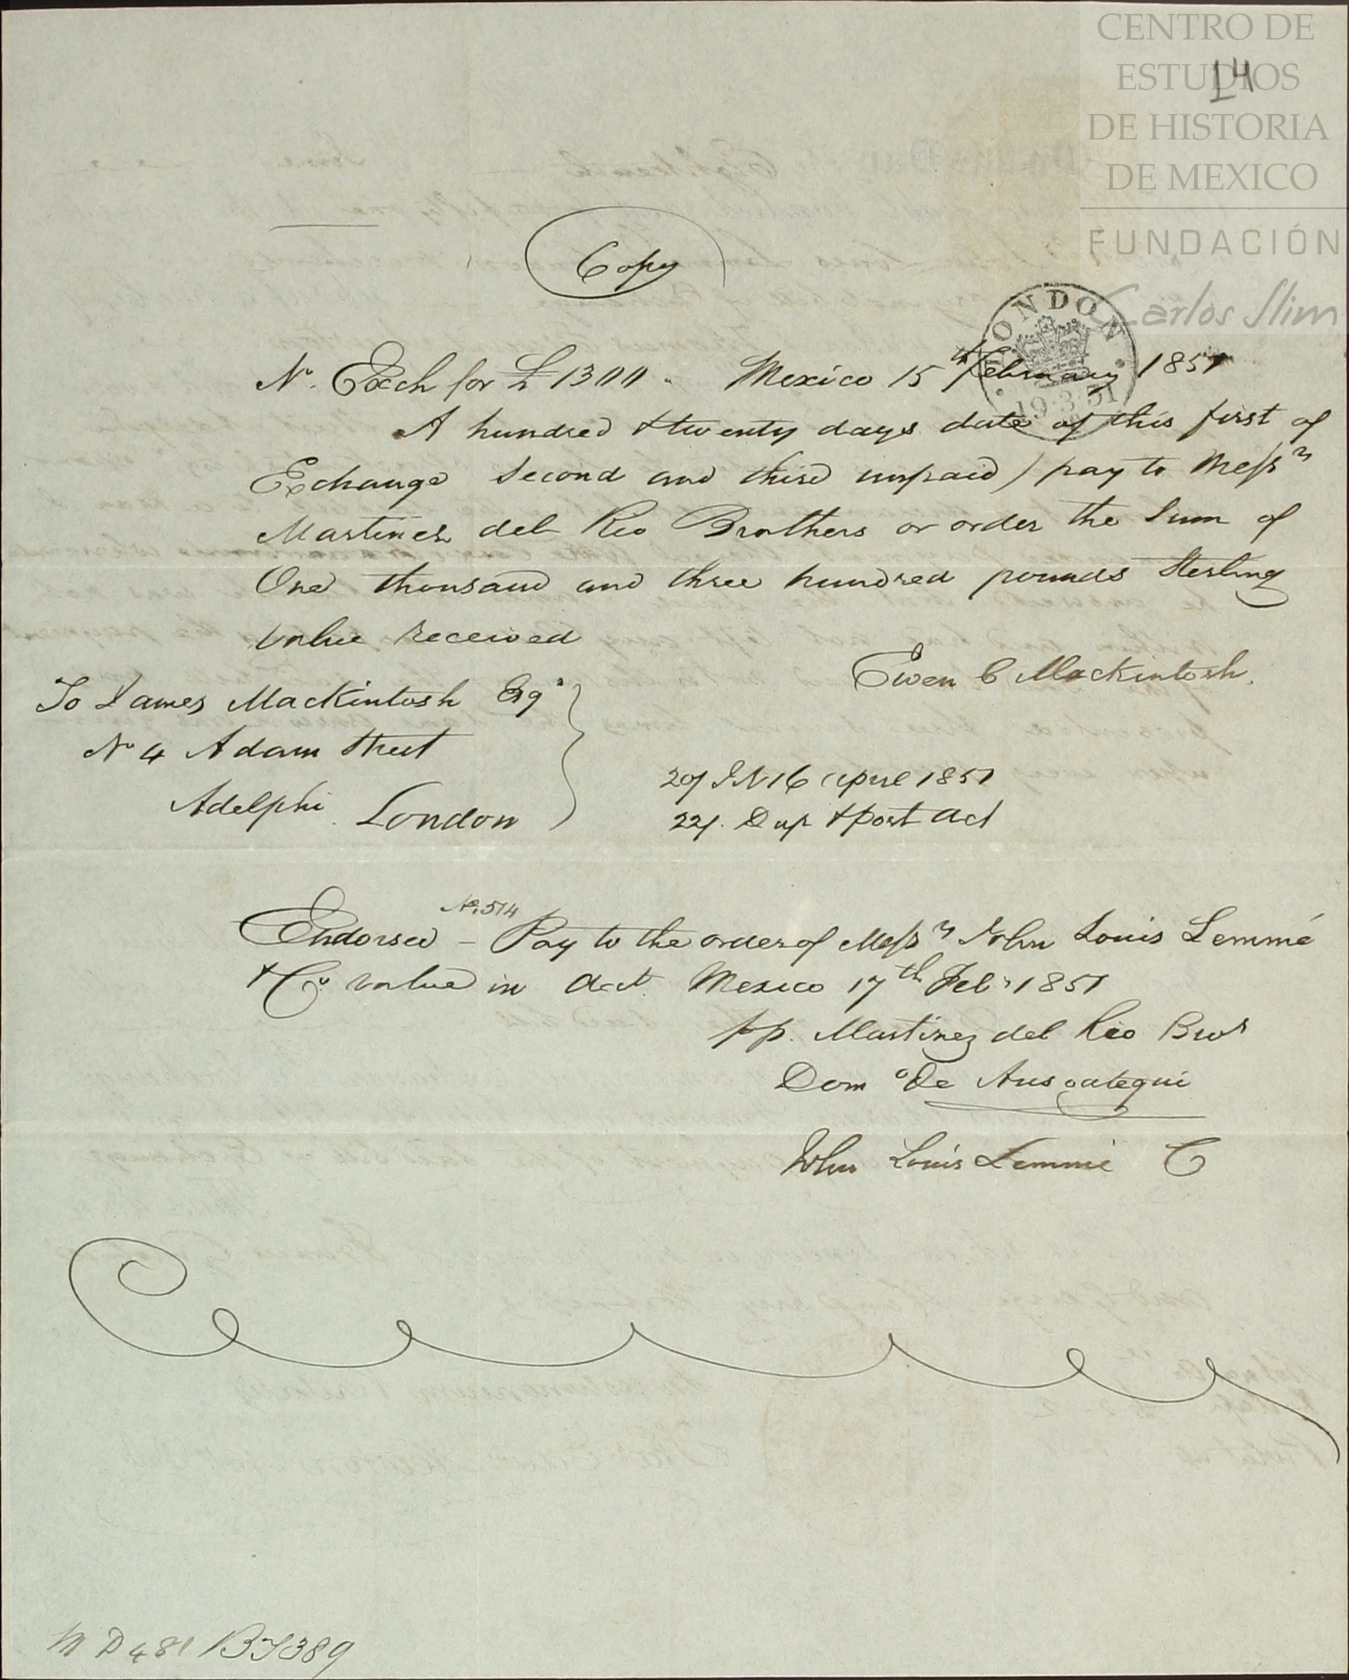 CENTRO DE
ESTUDIOS
DE HISTORIA
DE MEXICO
FUNDACIÓN
Carlos Slim
14
Copy
LONDON
19·3·51
No. Exch for £ 1300 - Mexico 15th February 1851
A hundred & twenty days date of this first of
Exchange Second and third unpaid) pay to Messrs
Martinez del Rio Brothers or order the Sum of
One thousand and three hundred pounds Sterling
Value received
Ewen C Mackintosh.
To James Mackintosh Esqr
No 4 Adam Street
Adelphi London
16 april 1851
22/. Dup & Post Act
No. 514
Endorsed - Pay to the order of Messrs John Louis Lemmé
& Co value in Act. Mexico 17th Feby 1851
pp. Martinez del Rio Bros
Domo de Ansoategui
John Louis Lemmé C
M D 481 B I 389